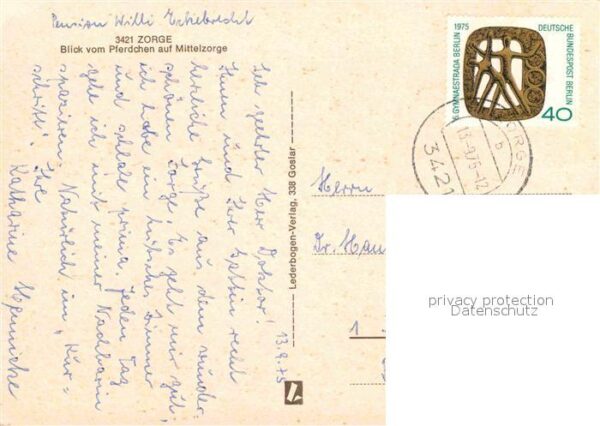 Pension Willi Eckebrecht
3421 ZORGE
Blick vom Pferdchen auf Mittelzorge
Sehr geehrter Herr Doktor!
Ihnen und Ihrer Gattin recht
herzliche Grüße aus dem wunder-
schönen Zorge. Es geht mir gut,
ich habe ein hübsches Zimmer
und schlafe prima. Jeden Tag
gehe ich mit meiner Nachbarin
spazieren. Natürlich im "Kur=
schritt"! Ihre
Katharine
13.9.75
Lederbogen-Verlag, 338 Goslar
6. GYMNAESTRADA BERLIN 1975
DEUTSCHE
BUNDESPOST BERLIN
40
ZORGE
b
15.-9.75-12
3421
Herrn
Dr. Han
1
privacy protection
Datenschutz